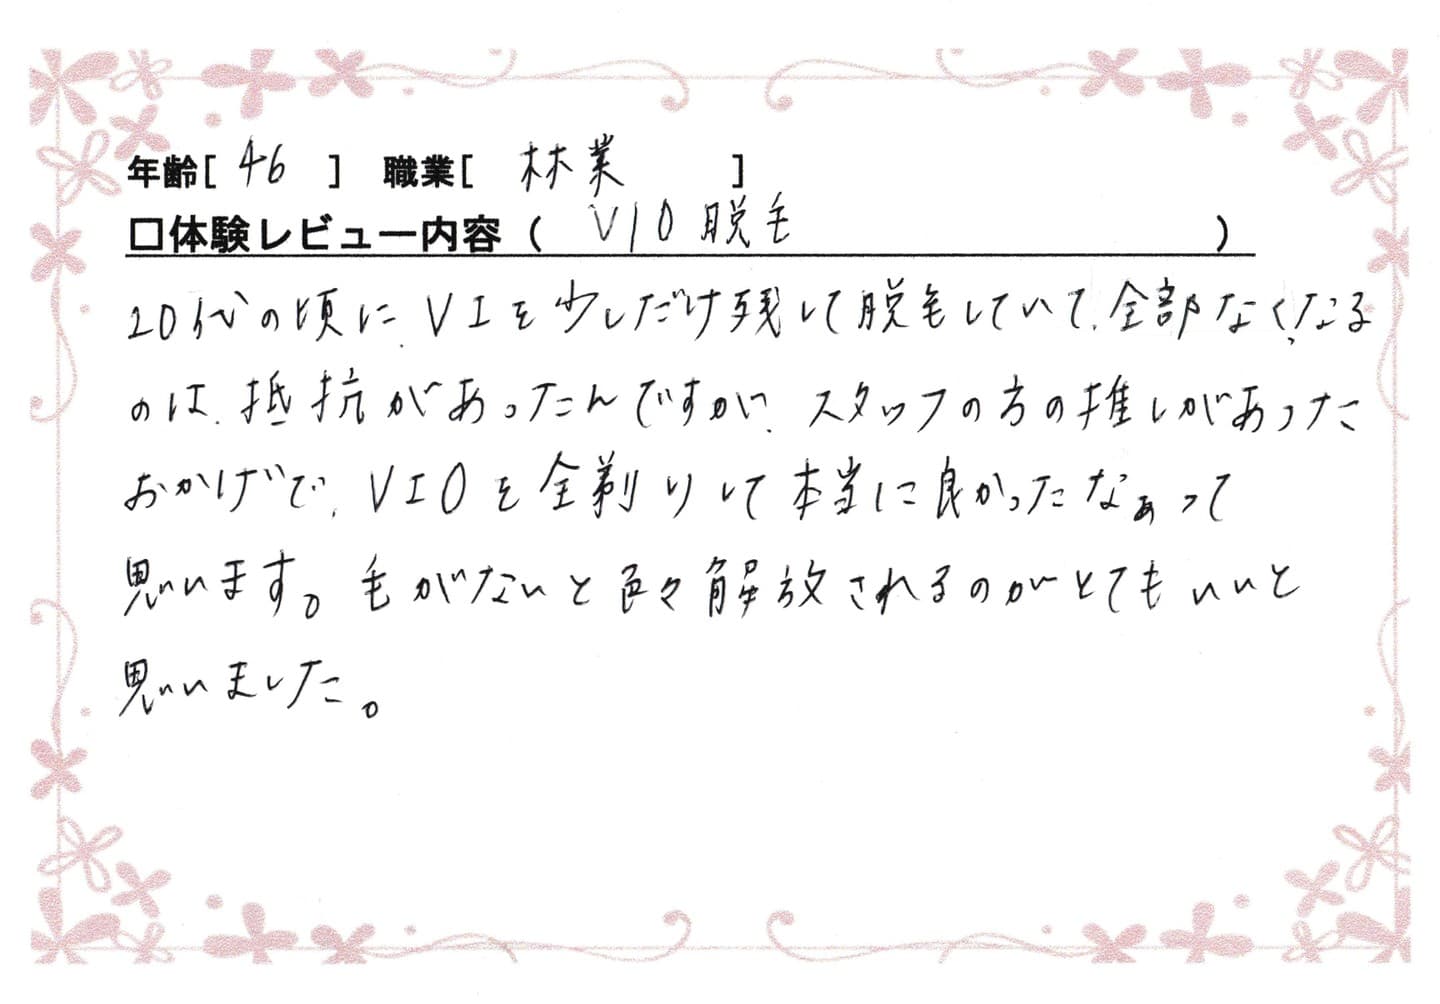 年齢[ 46 ] 職業[ 林業 ]
□体験レビュー内容（ VIO脱毛 ）
20代の頃に、VIを少しだけ残して脱毛していて、全部なくなる
のは、抵抗があったんですが、スタッフの方の推しがあった
おかげで、VIOを全剃りして本当に良かったなぁって
思います。毛がないと色々解放されるのがとてもいいと
思いました。